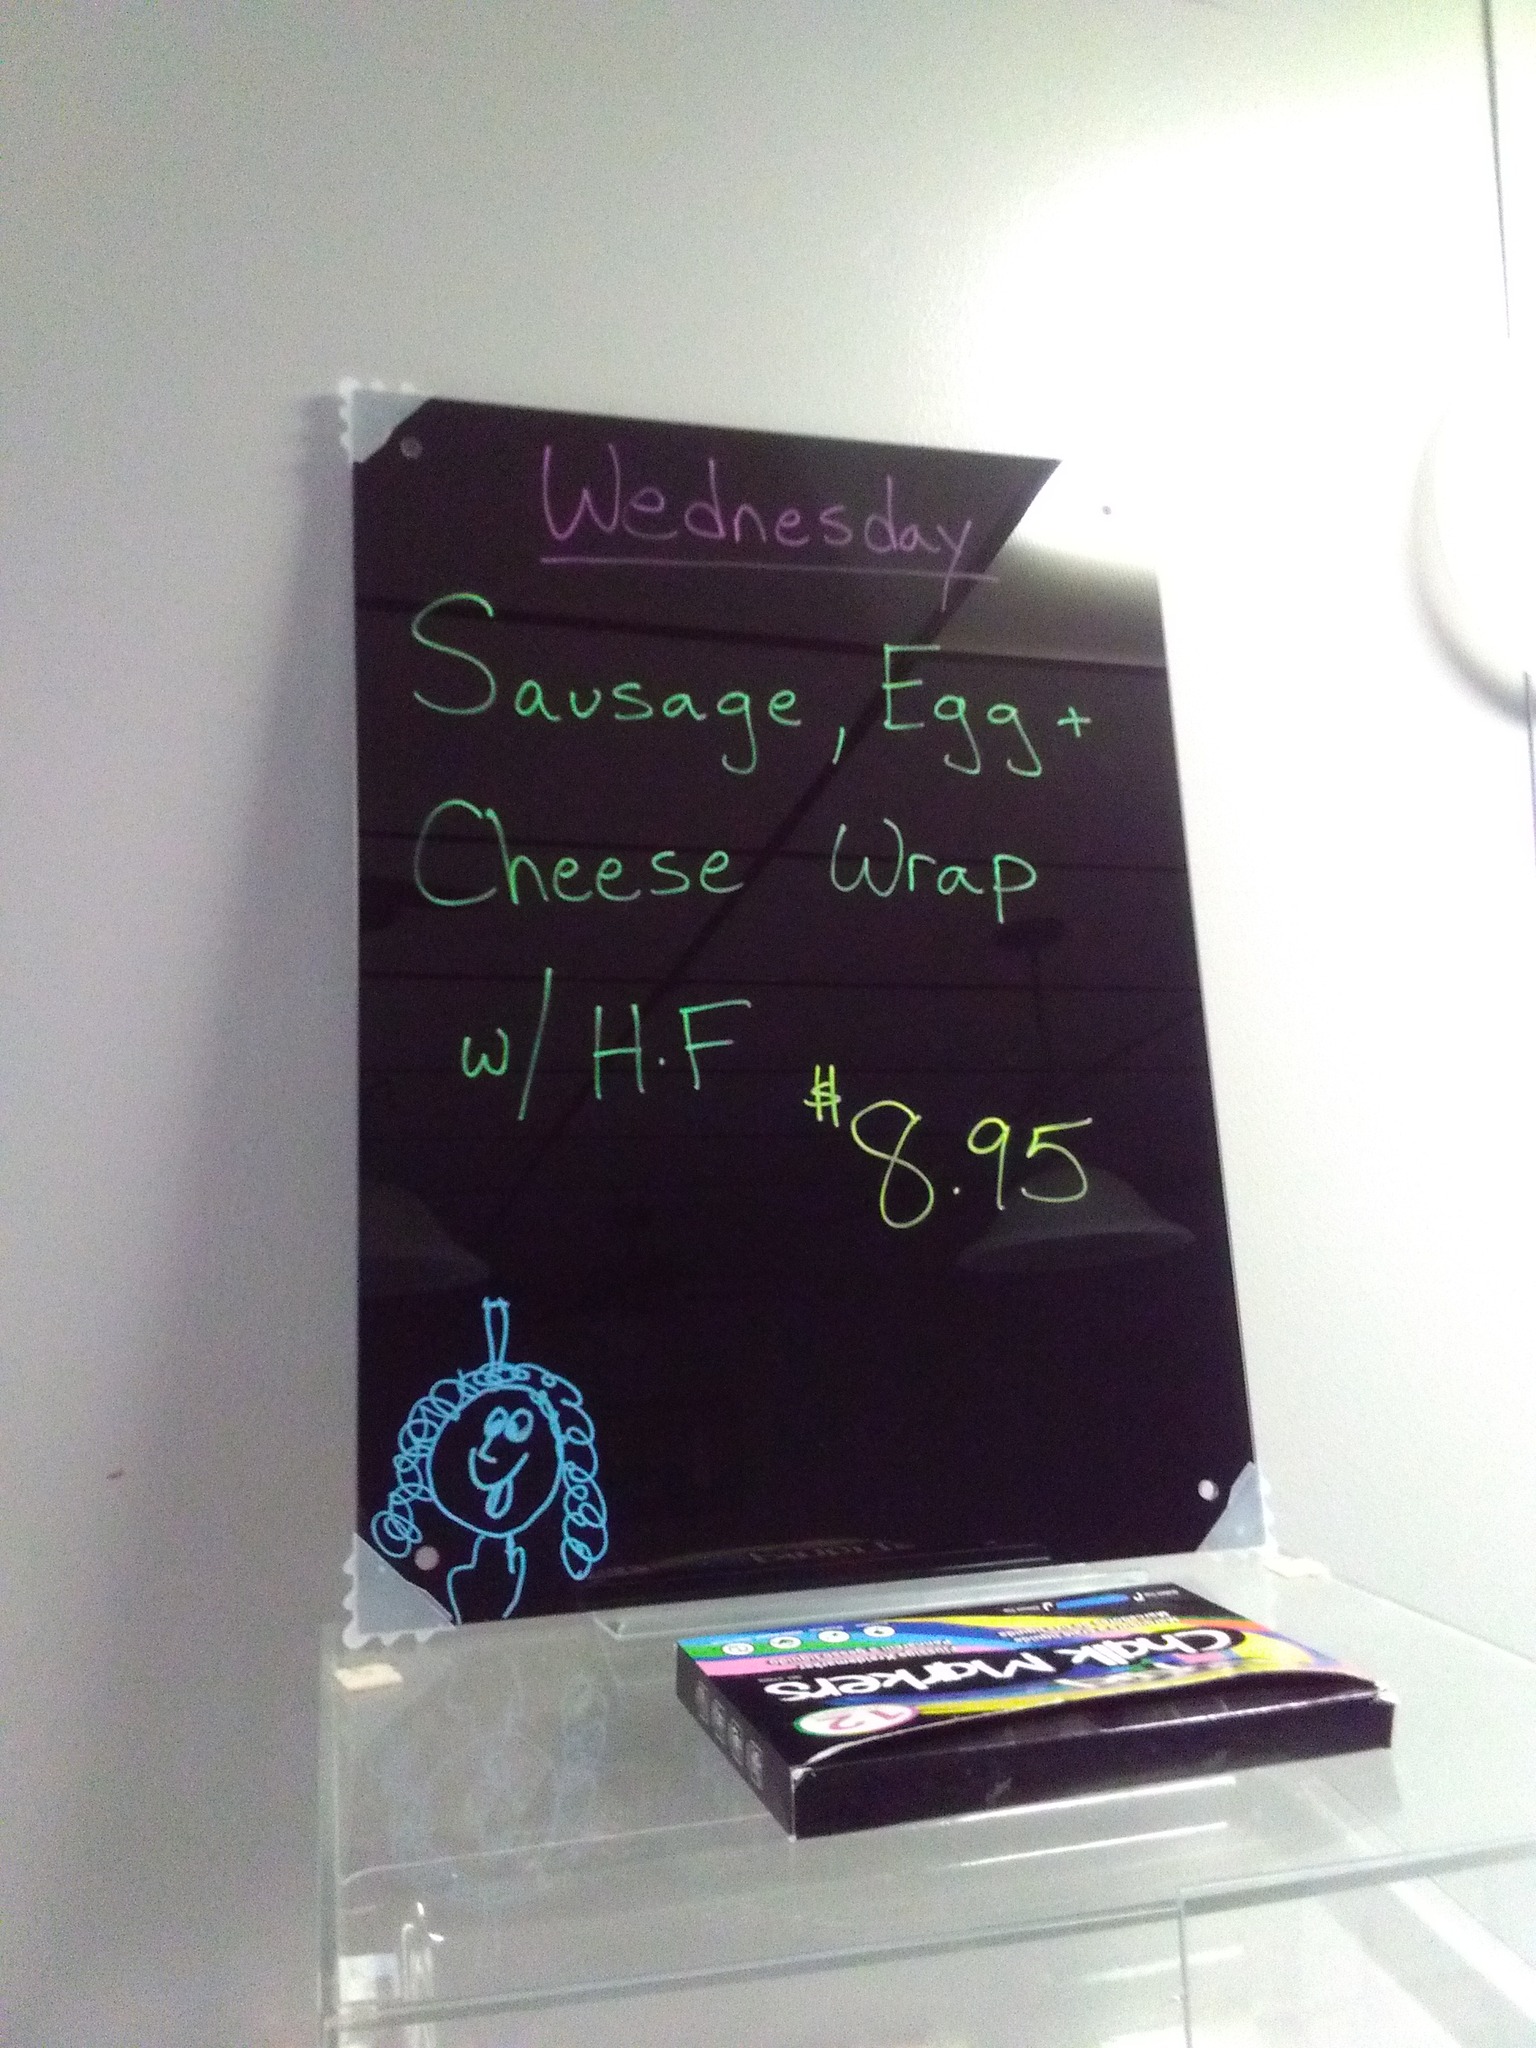 Wednesday
Sausage, Egg +
Cheese Wrap
w/ H.F
$8.95
Chalk Markers
12